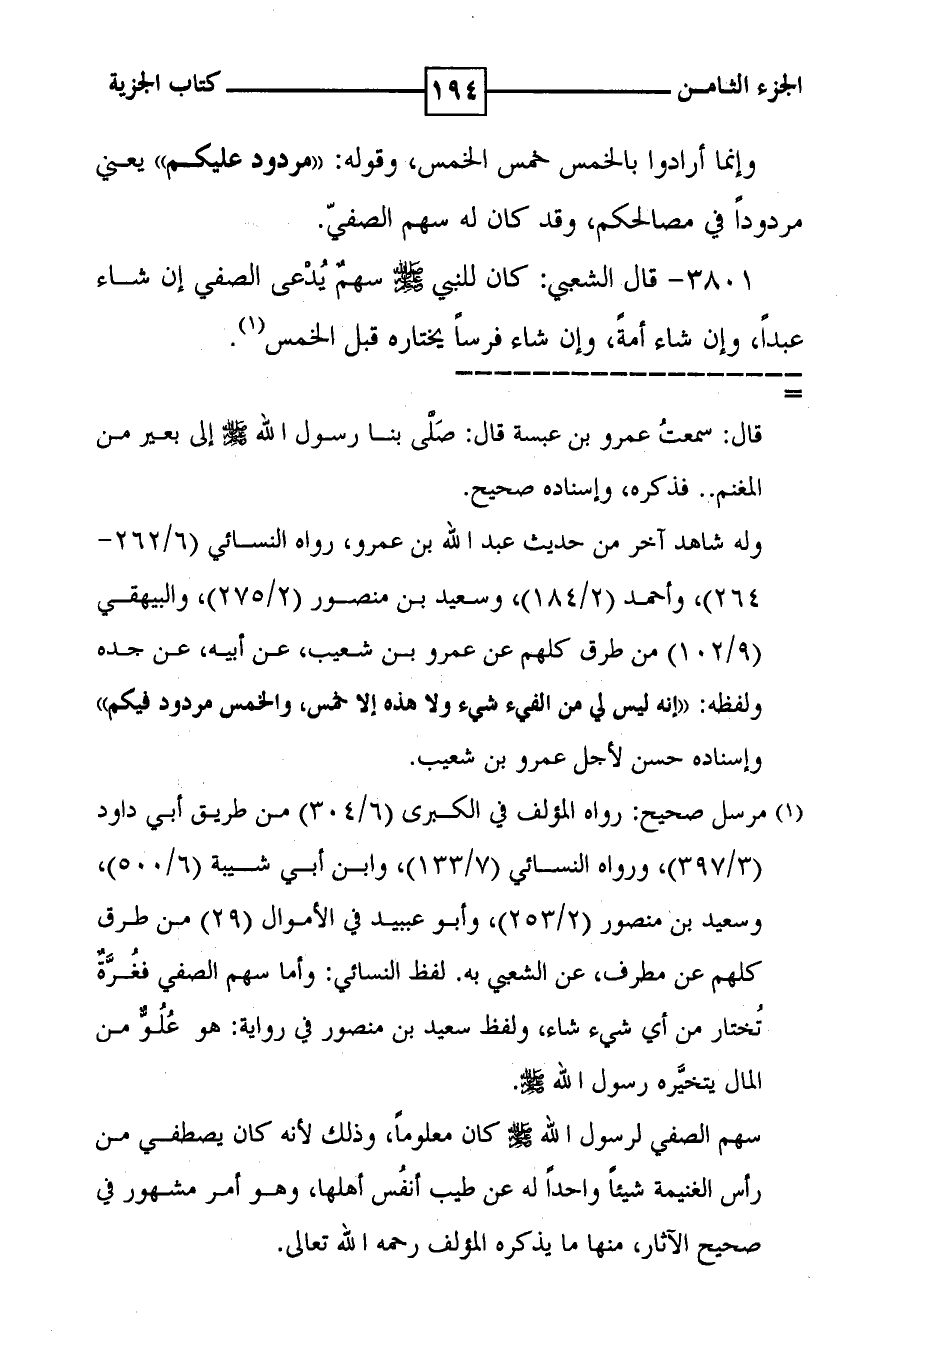 الجزء الثامن ١٩٤ كتاب الجزية
وإنما أرادوا بالخمس خمس الخمس، وقوله: «مردود عليكم» يعني
مردوداً في مصالحكم، وقد كان له سهم الصفيّ.
٣٨٠١- قال الشعبي: كان للنبي ﷺ سهمٌ يُدْعى الصفي إن شاء
عبداً، وإن شاء أمةً، وإن شاء فرساً يختاره قبل الخمس(١).
=
قال: سمعتُ عمرو بن عبسة قال: صَلَّى بنا رسول الله ﷺ إلى بعير من
المغنم.. فذكره، وإسناده صحيح.
وله شاهد آخر من حديث عبد الله بن عمرو، رواه النسائي (٢٦٢/٦-
٢٦٤)، وأحمد (١٨٤/٢)، وسعيد بن منصور (٢٧٥/٢)، والبيهقي
(١٠٢/٩) من طرق كلهم عن عمرو بن شعيب، عن أبيه، عن جده
ولفظه: «إنه ليس لي من الفيء شيء ولا هذه إلا خمس، والخمس مردود فيكم»
وإسناده حسن لأجل عمرو بن شعيب.
(١) مرسل صحيح: رواه المؤلف في الكبرى (٣٠٤/٦) من طريق أبي داود
(٣٩٧/٣)، ورواه النسائي (١٣٣/٧)، وابن أبي شيبة (٥٠٠/٦)،
وسعيد بن منصور (٢٥٣/٢)، وأبو عبيد في الأموال (٢٩) من طرق
كلهم عن مطرف، عن الشعبي به. لفظ النسائي: وأما سهم الصفي فغُرَّةٌ
تُختار من أي شيء شاء، ولفظ سعيد بن منصور في رواية: هو عُلُوٌّ من
المال يتخيَّره رسول الله ﷺ.
سهم الصفي لرسول الله ﷺ كان معلوماً، وذلك لأنه كان يصطفي من
رأس الغنيمة شيئاً واحداً له عن طيب أنفُس أهلها، وهو أمر مشهور في
صحيح الآثار، منها ما يذكره المؤلف رحمه الله تعالى.